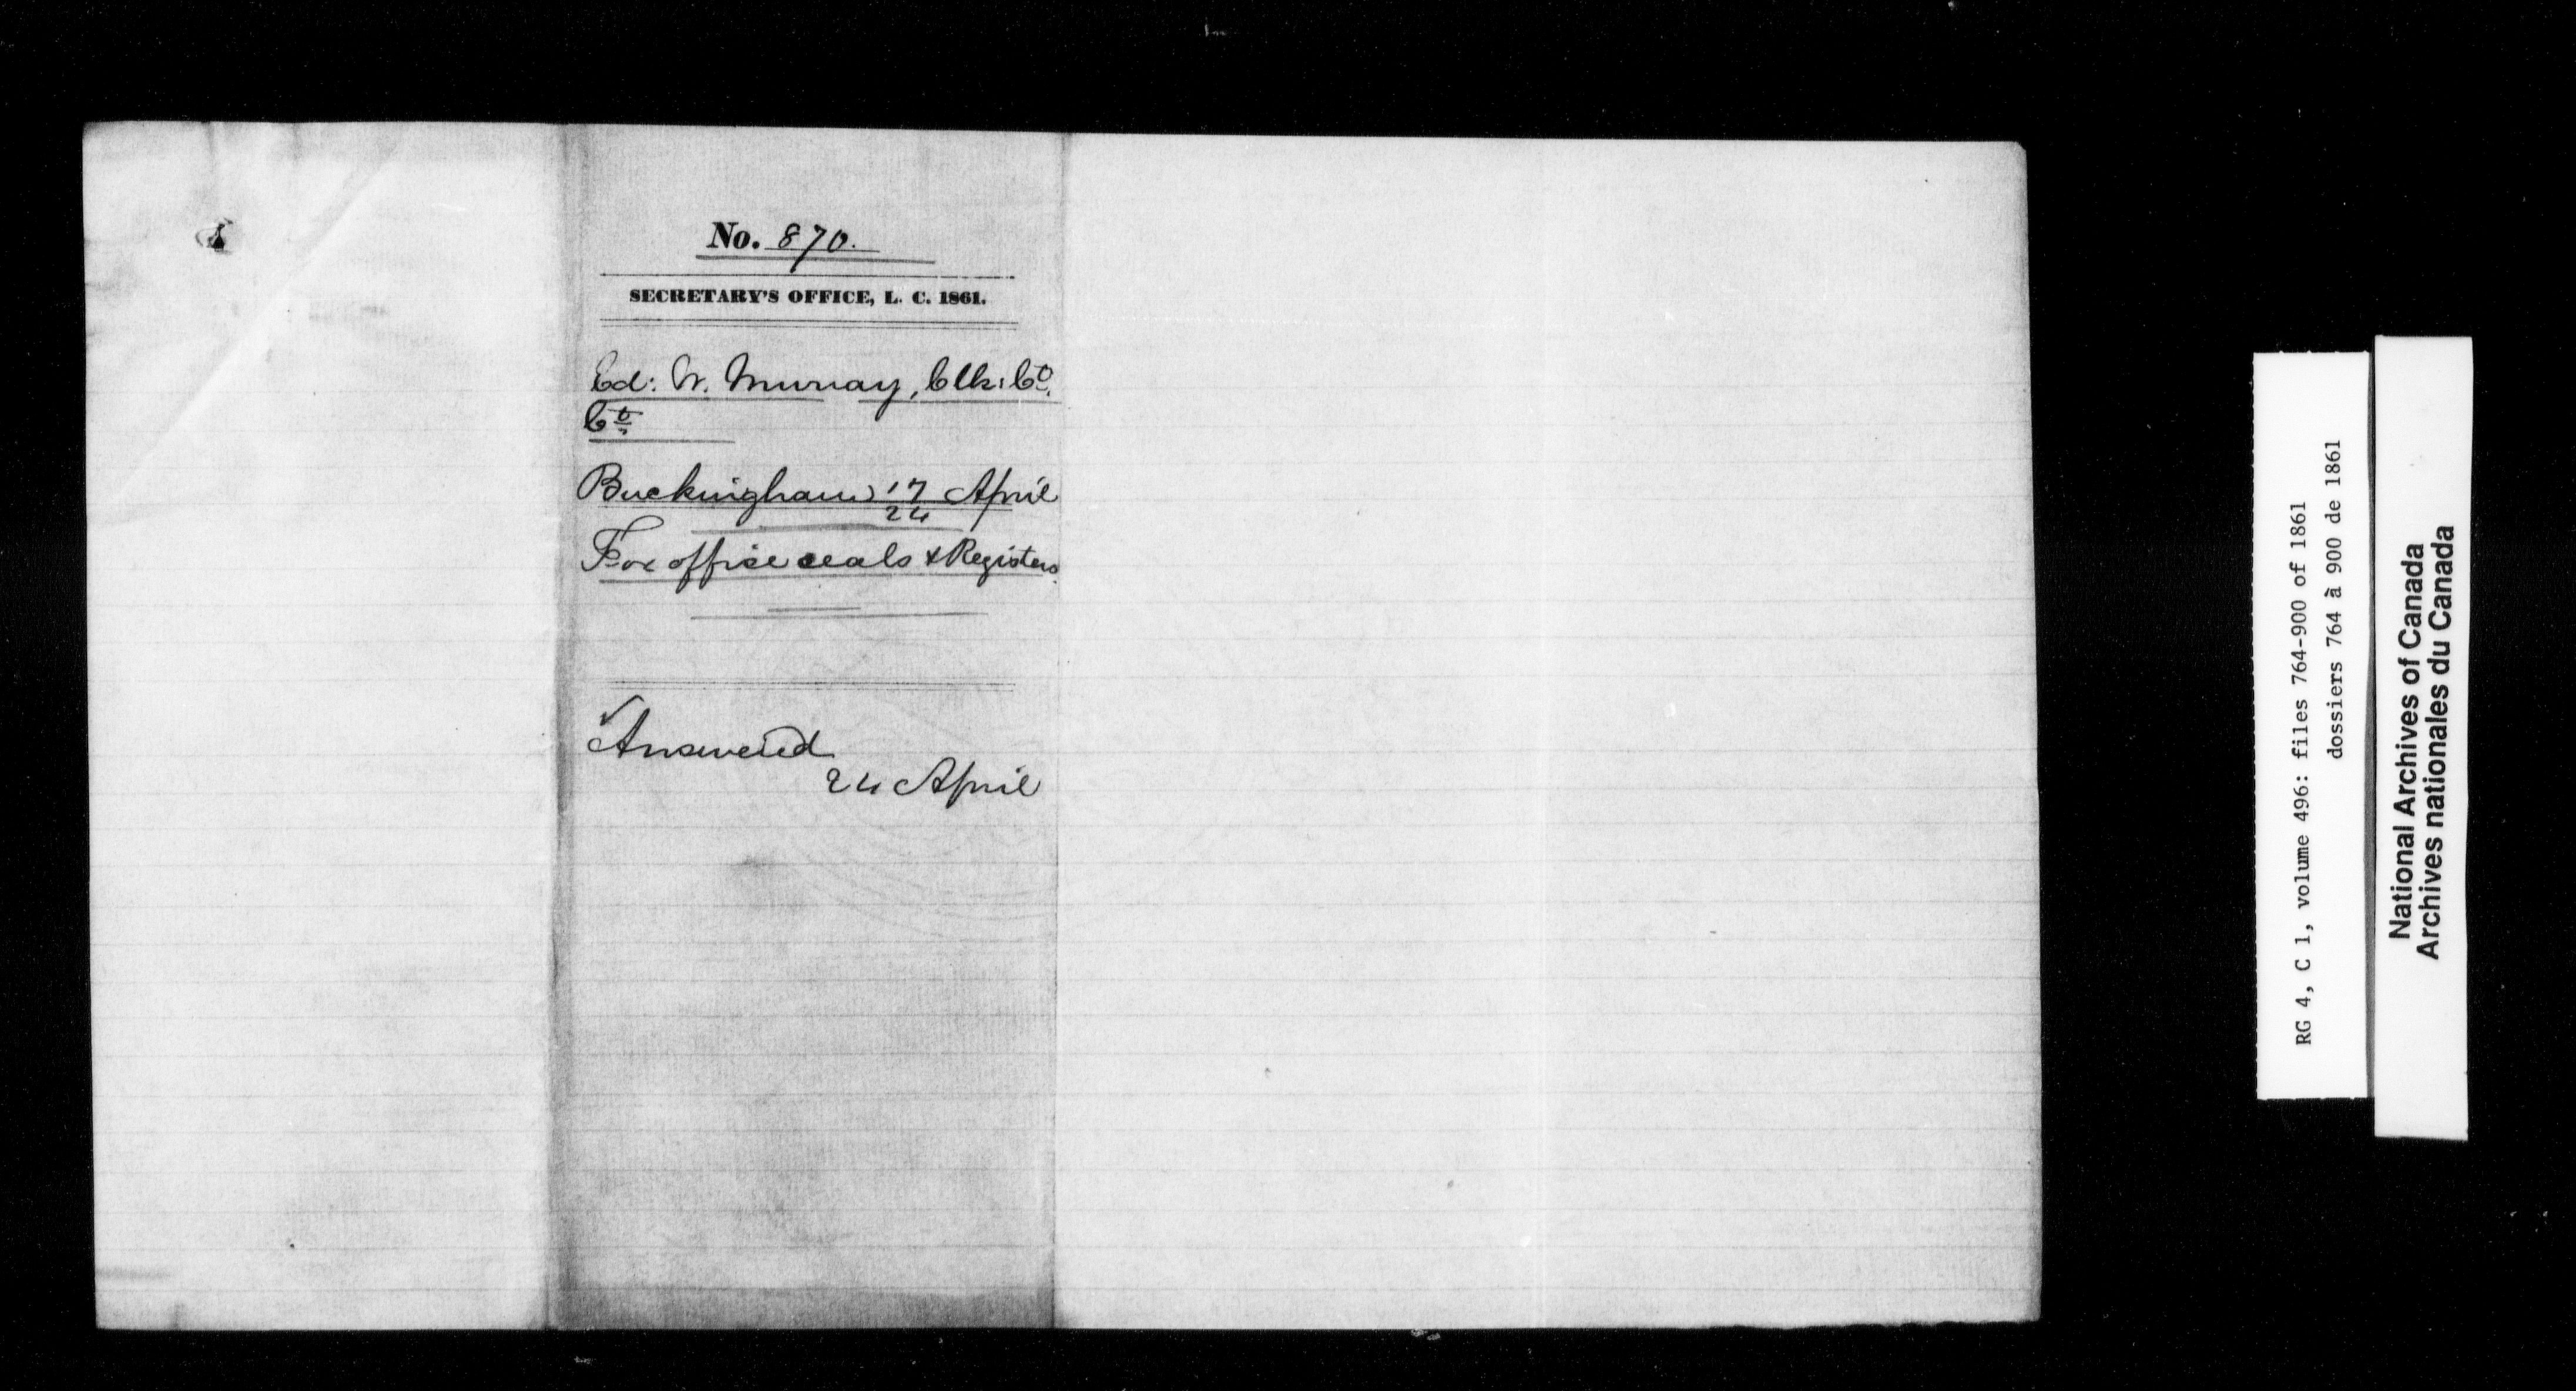 No. 870.
SECRETARY'S OFFICE, L. C. 1861.
Ed: W. Murray, Clk: Co.
Ct.
Buckingham 17 April
24
For office seals & Registers
Answered
24 April
RG 4, C 1, volume 496: files 764-900 of 1861
dossiers 764 à 900 de 1861
National Archives of Canada
Archives nationales du Canada